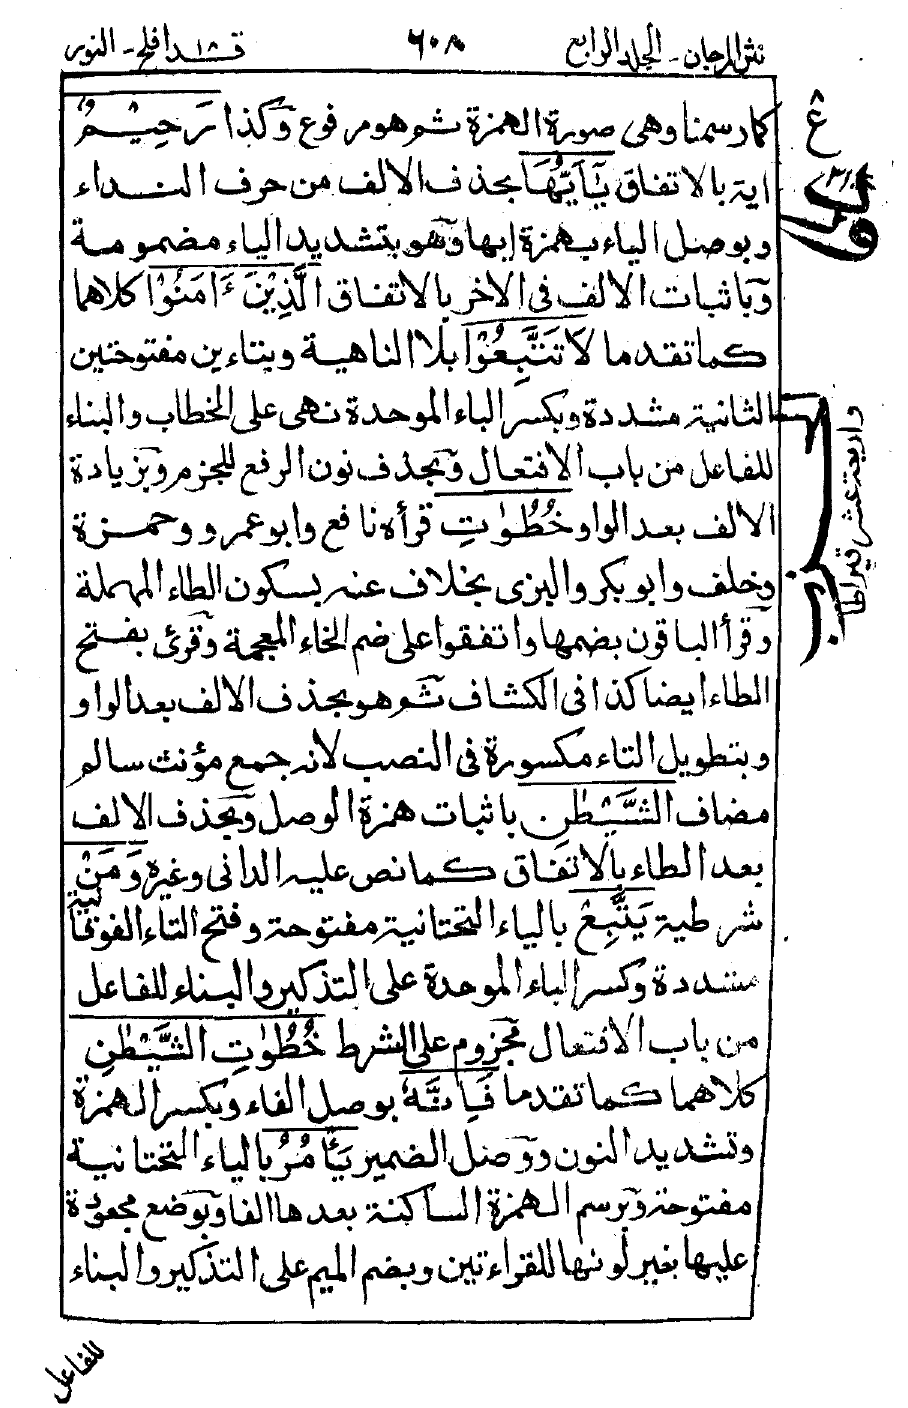 نثر المرجان - الجلد الرابع ٦٠٨ قد افلح ١٨ - النور
كما رسمنا وهى صورة الهمزة ثم هو مرفوع وكذا رَحِيْمٌ
اية بالاتفاق يٰٓاَيُّهَا بحذف الالف من حرف النداء
وبوصل الياء بهمزة ايها وهو بتشديد الياء مضمومة
وباثبات الالف فى الاخر بالاتفاق الَّذِيْنَ ءَامَنُوْا كلاهما
كما تقدما لَا تَتَّبِعُوْا بلا الناهية وبتاءين مفتوحتين
الثانية مشددة وبكسر الباء الموحدة نهى على الخطاب والبناء
للفاعل من باب الافتعال وبحذف نون الرفع للجزم وبزيادة
الالف بعد الواو خُطُوٰتِ قرأه نافع وابو عمرو وحمزة
وخلف وابو بكر والبزى بخلاف عنه بسكون الطاء المهملة
وقرأ الباقون بضمها واتفقوا على ضم الخاء المعجمة وقرئ بفتح
الطاء ايضا كذا فى الكشاف ثم هو بحذف الالف بعد الواو
وبتطويل التاء مكسورة فى النصب لانه جمع مؤنث سالم
مضاف الشَّيْطٰنِ باثبات همزة الوصل وبحذف الالف
بعد الطاء بالاتفاق كما نص عليه الدانى وغيره وَمَنْ
شرطية يَتَّبِعْ بالياء التحتانية مفتوحة وفتح التاء الفوقانية
مشددة وكسر الباء الموحدة على التذكير والبناء للفاعل
من باب الافتعال مجزوم على الشرط خُطُوٰتِ الشَّيْطٰنِ
كلاهما كما تقدما فَاِنَّهٗ بوصل الفاء وبكسر الهمزة
وتشديد النون ووصل الضمير يَاْمُرُ بالياء التحتانية
مفتوحة وبرسم الهمزة الساكنة بعدها الفا وبوضع مجعودة
عليها بغير لونها للقراءتين وبضم الميم على التذكير والبناء
للفاعل
ع
واربعة عشر قيراطا